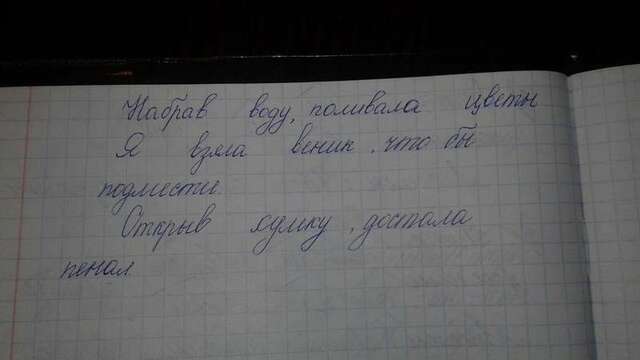 Набрав воду, поливала цветы
Я взяла веник, что бы
подмести
Открыв сумку, достала
пенал